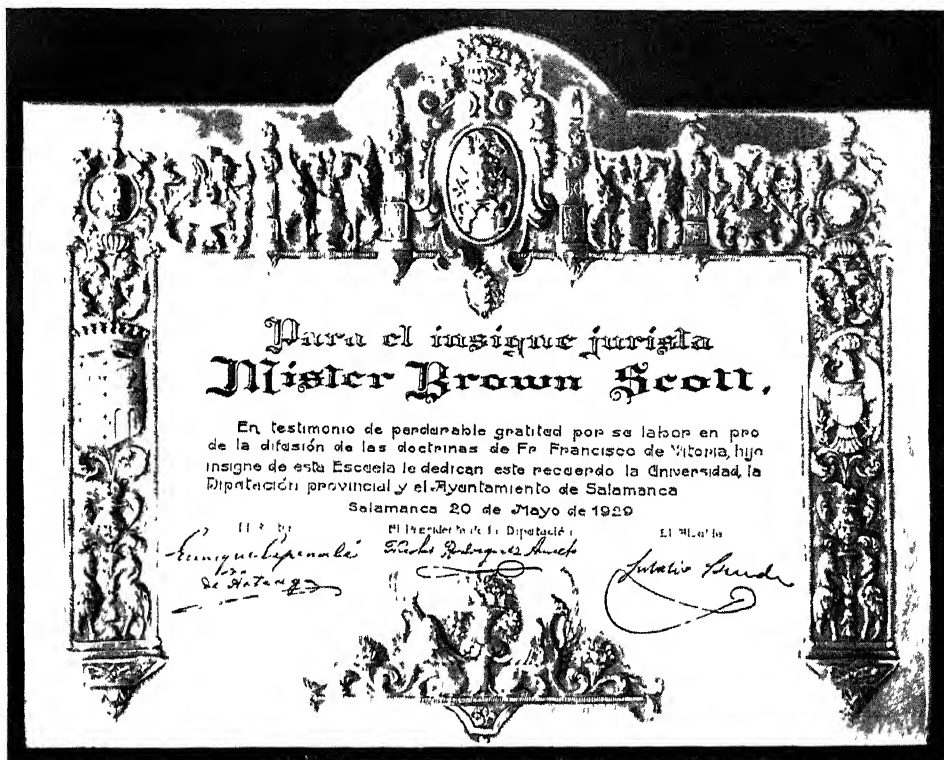 Para el insigne jurista
Mister Brown Scott.
En testimonio de perdurable gratitud por su labor en pro
de la difusión de las doctrinas de Fr Francisco de Vitoria, hijo
insigne de esta Escuela le dedican este recuerdo la Universidad, la
Diputación provincial y el Ayuntamiento de Salamanca
Salamanca 20 de Mayo de 1929
El Presidente de la Diputación
El Alcalde